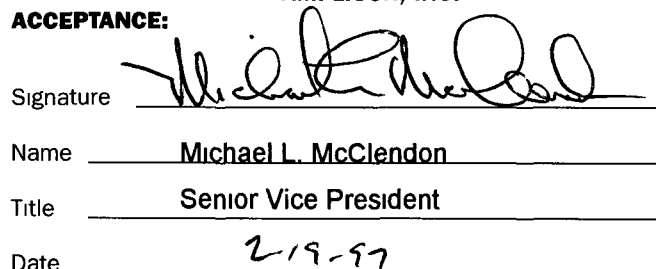 ACCEPTANCE:
Signature Michael McClendon
Name Michael L. McClendon
Title Senior Vice President
Date 2-19-97